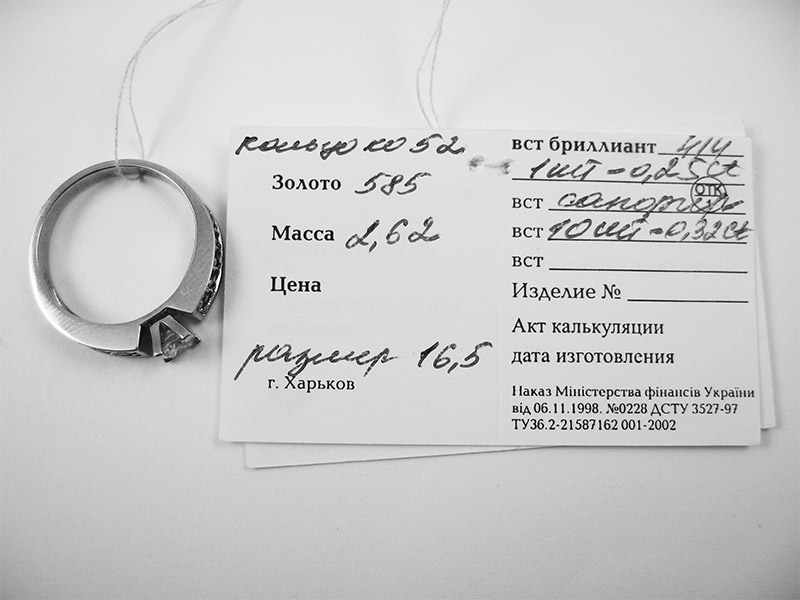 кольцо ко 52
Золото 585
Масса 2,62
Цена
размер 16,5
г. Харьков
вст бриллиант 4/4
1шт - 0,25 Ct
ОТК
вст сапфир
вст 10шт - 0,32 Ct
вст
Изделие №
Акт калькуляции
дата изготовления
Наказ Міністерства фінансів України
від 06.11.1998. №0228 ДСТУ 3527-97
ТУ36.2-21587162 001-2002